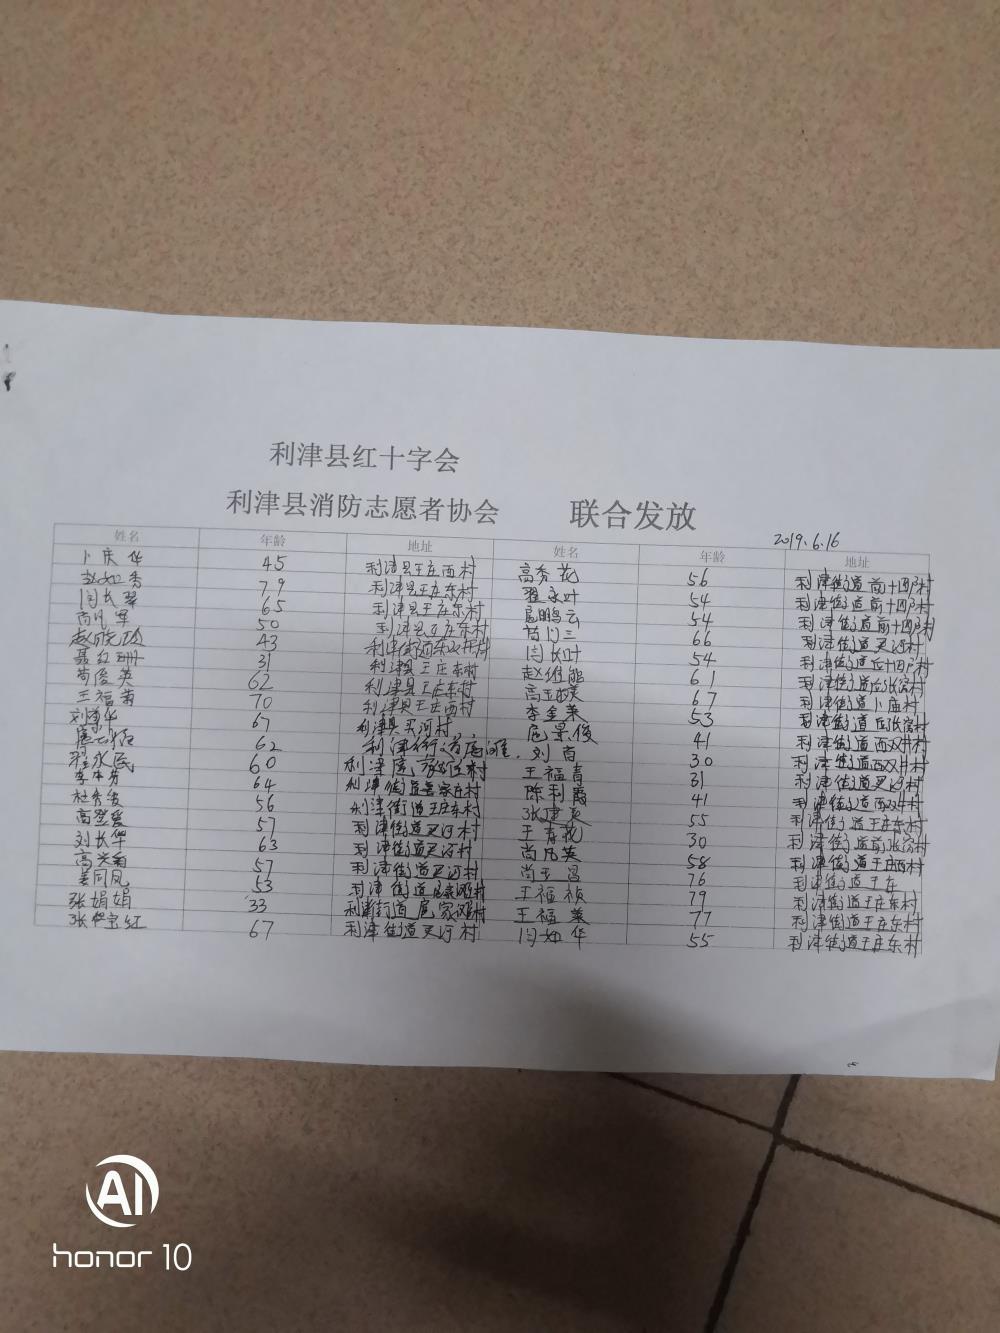 利津县红十字会
利津县消防志愿者协会 联合发放
2019.6.16
姓名 年龄 地址 姓名 年龄 地址
卜庆华 45 利津县王庄西村 高秀花 56 利津街道前十四户村
赵如秀 79 利津县王庄东村 翟永叶 54 利津街道前十四户村
闫长翠 65 利津县王庄东村 扈鹏云 54 利津街道前十四户村
50 利津县王庄东村 苟门三 66 利津街道
43 闫长叶 54 利津街道后十四户村
聂红珊 31 利津县王庄东村 赵维能 61 利津街道后张窝村
苟俊英 62 利津县王庄东村 67 利津街道卜庙村
王福菊 70 利津县王庄西村 李金莱 53 利津街道后张窝村
67 利津县买河村 扈景俊 41 利津街道西双井村
62 利津街道扈滩 刘 30 利津街道西双井村
翟永民 60 王福青 31 利津街道
64 利津街道 陈利霞 41 利津街道西双井村
杜秀爱 56 利津街道王庄东村 张建 55 利津街道王庄东村
高登爱 57 利津街道 王青花 30 利津街道前张窝村
刘长华 63 利津街道 尚凡英 58 利津街道王庄西村
57 利津街道 尚玉昌 76 利津街道王东
姜同凤 53 利津街道扈家滩村 王福祯 79 利津街道王庄东村
张娟娟 33 利津街道扈家滩村 王福莱 77 利津街道王庄东村
67 利津街道 闫如华 55 利津街道王庄东村
AI
honor 10